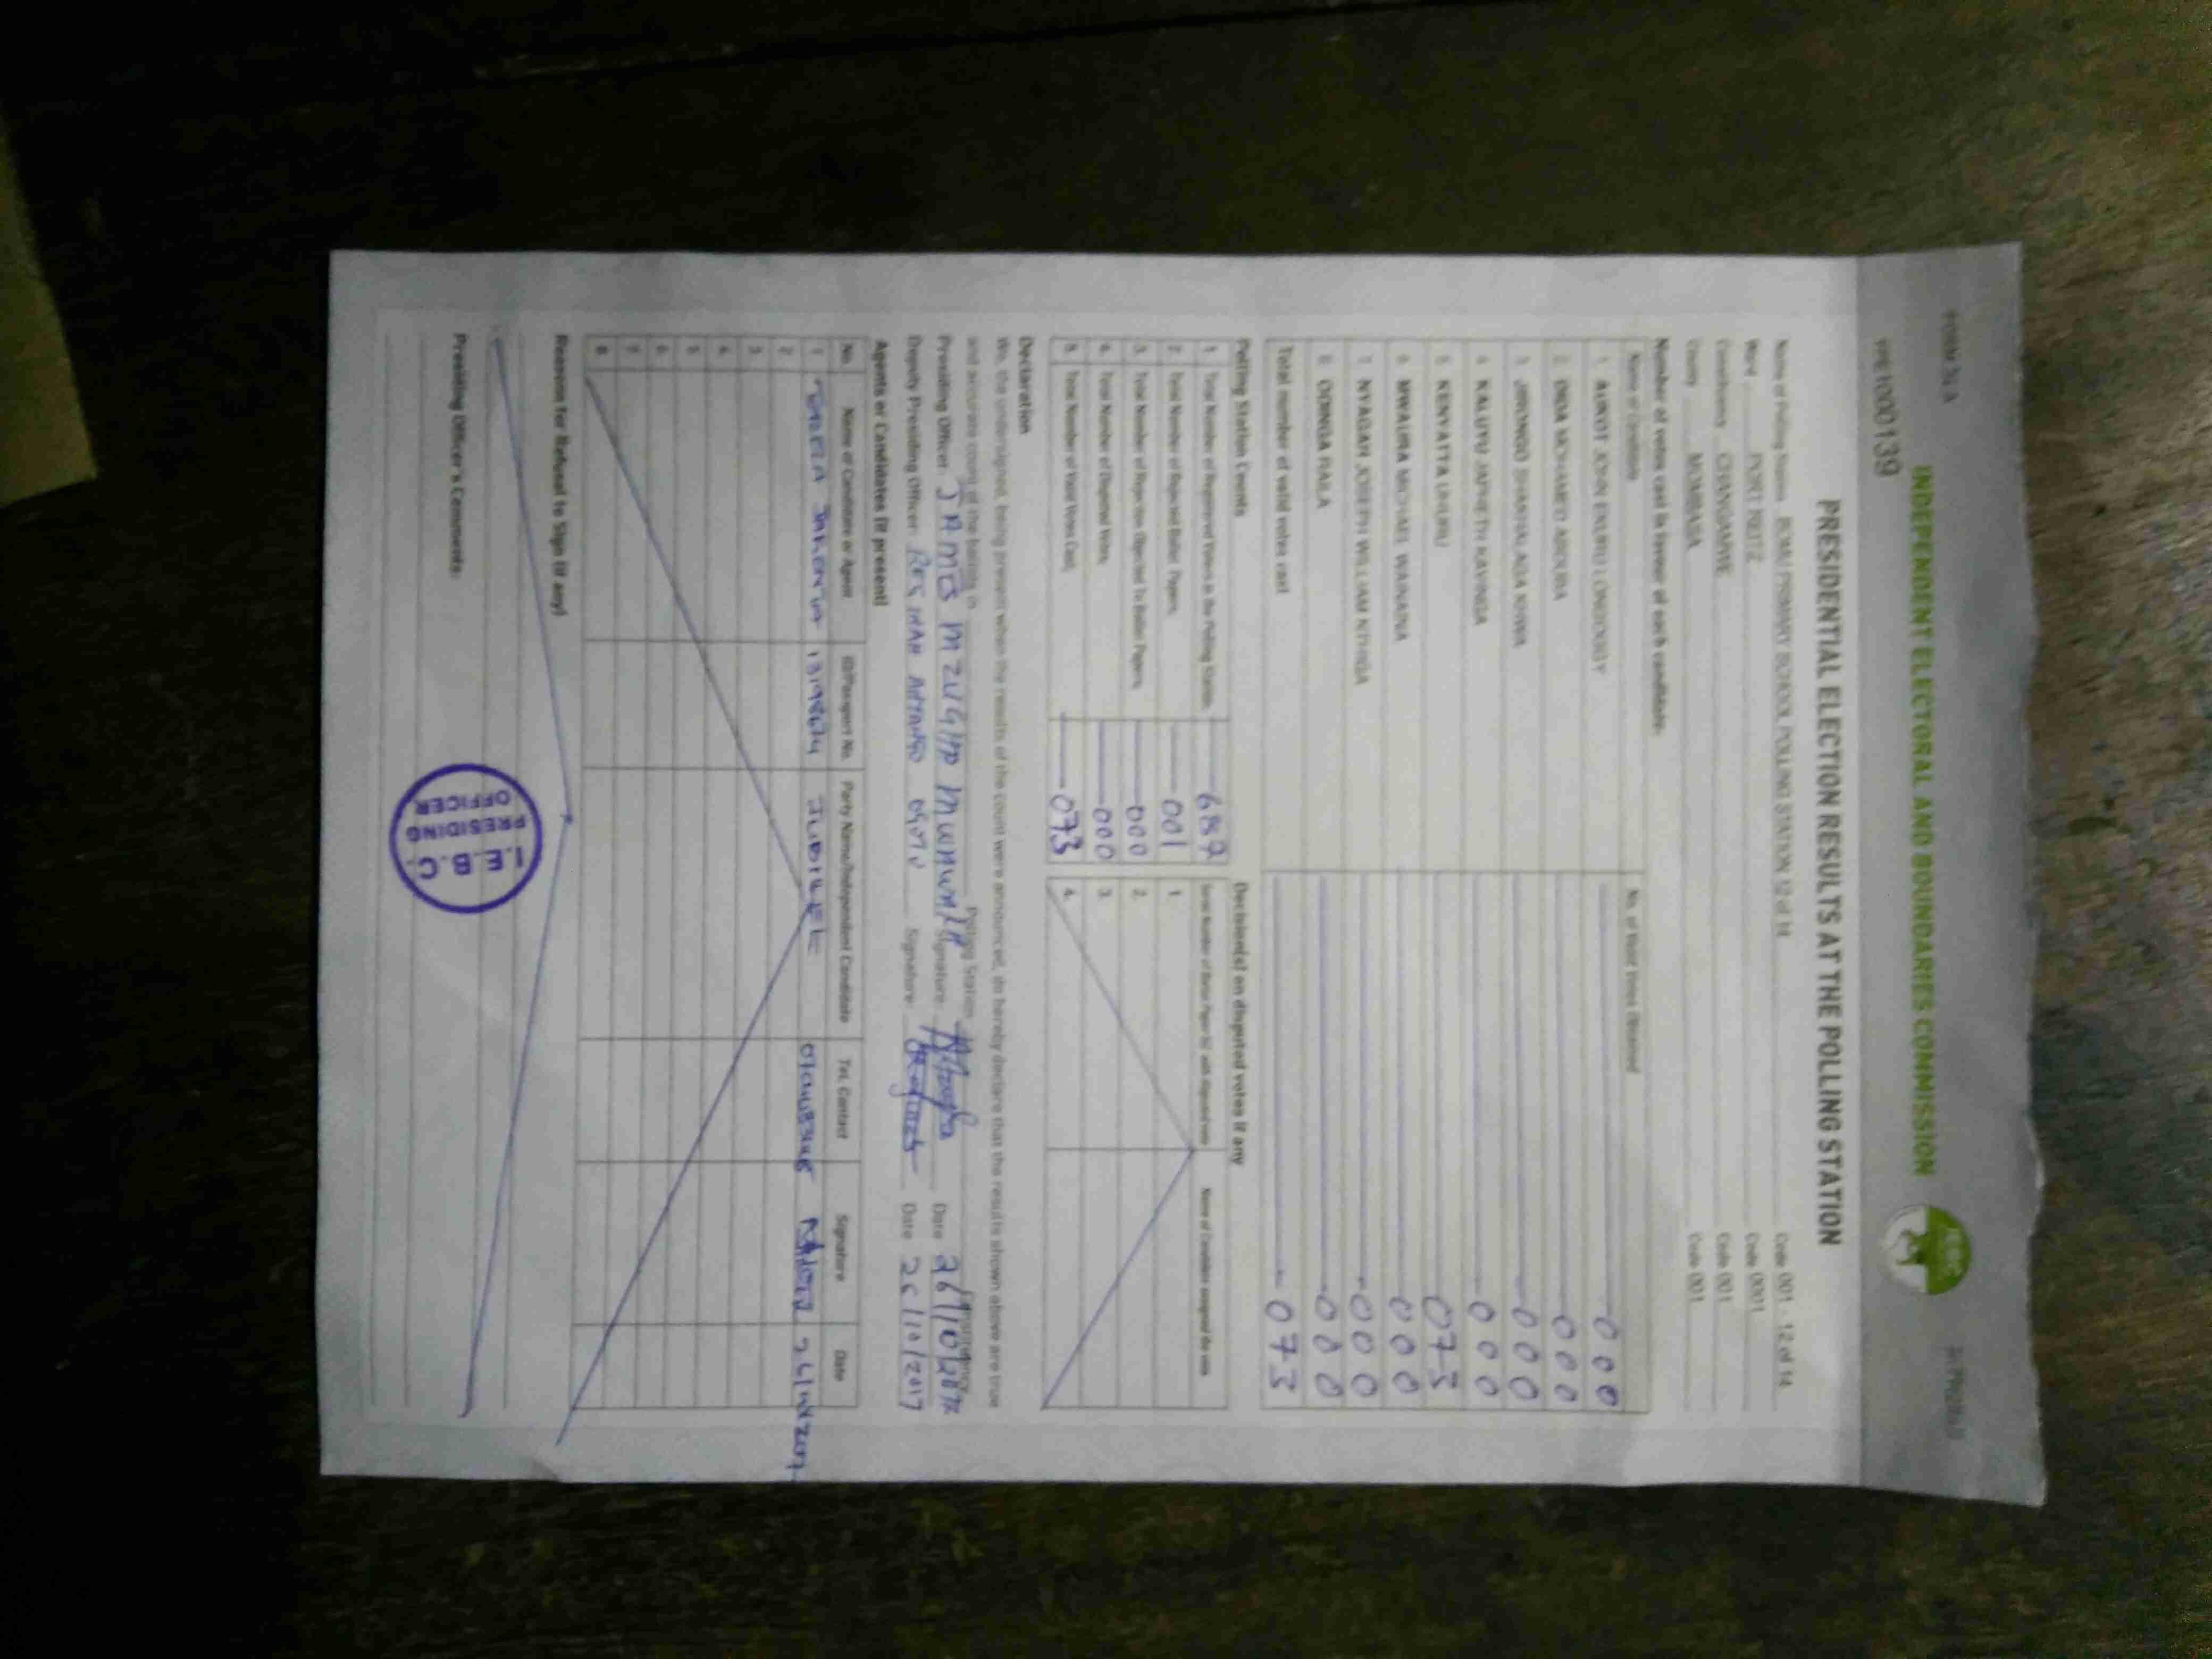 FORM 34A
INDEPENDENT ELECTORAL AND BOUNDARIES COMMISSION
PRESIDENTIAL ELECTION RESULTS AT THE POLLING STATION
Name of Polling Station BOMU PRIMARY SCHOOL POLLING STATION 12 of 14 Code 001 - 12 of 14
Ward PORT REITZ Code 0001
Constituency CHANGAMWE Code 001
County MOMBASA Code 001
Number of votes cast in favour of each candidate:
Name of Candidate No. of Valid Votes Obtained
1. AUKOT JOHN EKURU LONGIOGGY 000
2. DIDA MOHAMED ABDUBA 000
3. JIRONGO SHAKHALAGA KHWA 000
4. KALUYU JAPHETH KAVINGA 000
5. KENYATTA UHURU 073
6. MWAURA MICHAEL WAINAINA 000
7. NYAGAH JOSEPH WILLIAM NTHIGA 000
8. ODINGA RAILA 000
Total number of valid votes cast 073
Polling Station Counts
1. Total Number of Registered Voters in the Polling Station
2. Total Number of Rejected Ballot Papers 001
3. Total Number of Rejection Objected To Ballot Papers 000
4. Total Number of Disputed Votes 000
5. Total Number of Valid Votes Cast 073
Decision(s) on disputed votes if any
1
2
3
4
Declaration
We, the undersigned, being present when the results of the count were announced, do hereby declare that the results shown above are true
and accurate count of the ballots in Polling Station Constituency
Presiding Officer JAMES Signature Date 26/10/2017
Deputy Presiding Officer Signature Date 26/10/2017
Agents or Candidates (if present)
No. Name of Candidate or Agent ID/Passport No. Party Name/Independent Candidate Tel. Contact Signature Date
1 JUBILEE 26/10/2017
2
3
4
5
6
7
8
Reasons for Refusal to Sign (if any)
Presiding Officer's Comments:
I.E.B.C.
PRESIDING
OFFICER